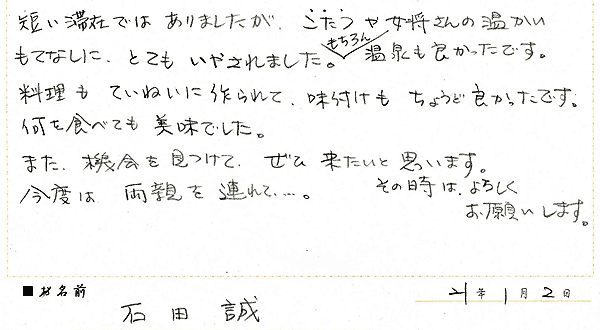 短い滞在ではありましたが、こたつや女将さんの温かい
もてなしに、とてもいやされました。もちろん温泉も良かったです。
料理もていねいに作られて、味付けもちょうど良かったです。
何を食べても美味でした。
また、機会を見つけて、ぜひ来たいと思います。
今度は両親を連れて…。その時は、よろしく
お願いします。
■お名前
21年1月2日
石田 誠